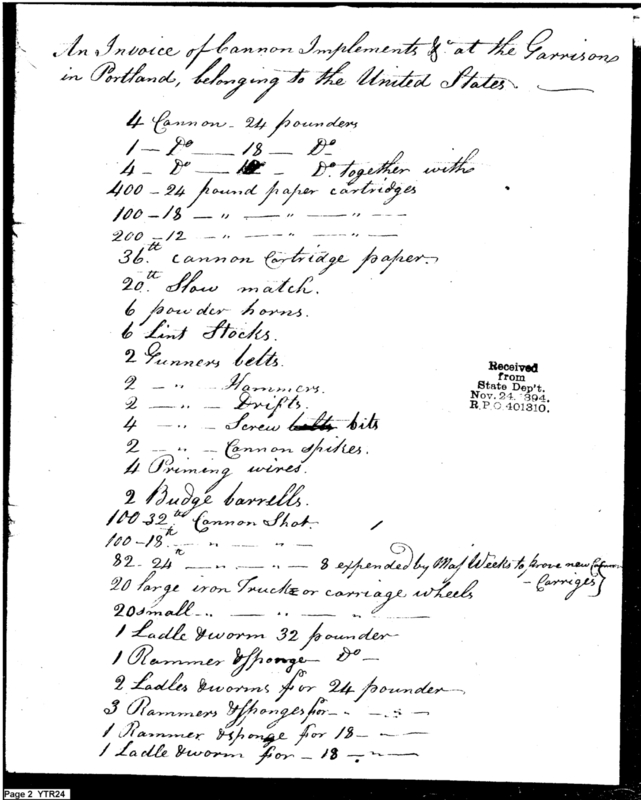 An Invoice of Cannon Implements &c at the Garrison
in Portland, belonging to the United States
4 Cannon - 24 pounders
1 - Do - 18 - Do -
4 - Do - 12 - Do together with
400 - 24 pound paper cartridges
100 - 18 - " - " - " -
200 - 12 - " - " - " -
36 tt. cannon Cartridge paper.
20 tt. Slow match.
6 powder horns.
6 Lint Stocks.
2 Gunners belts.
2 - " - Hammers.
2 - " - Drifts.
4 - " - Screw belts bits
2 - " - Cannon spikes.
4 Priming wires.
2 Budge barrells.
100 - 32 tt. Cannon Shot.
100 - 18 tt - " - " -
82 - 24 tt - " - " - 8 expended by Maj Weeks to prove new
- Carriges}
20 large iron Truck or carriage wheels
20 small " " - " -
1 Ladle & worm 32 pounder
1 Rammer & Sponge Do -
2 Ladles & worms for 24 pounder
3 Rammers & Sponges for - " - " -
1 Rammer & sponge for 18 - " -
1 Ladle & worm for - 18 - " -
Received
from
State Dep't.
Nov. 24. 1894.
R.P.O 401310.
Page 2 YTR24